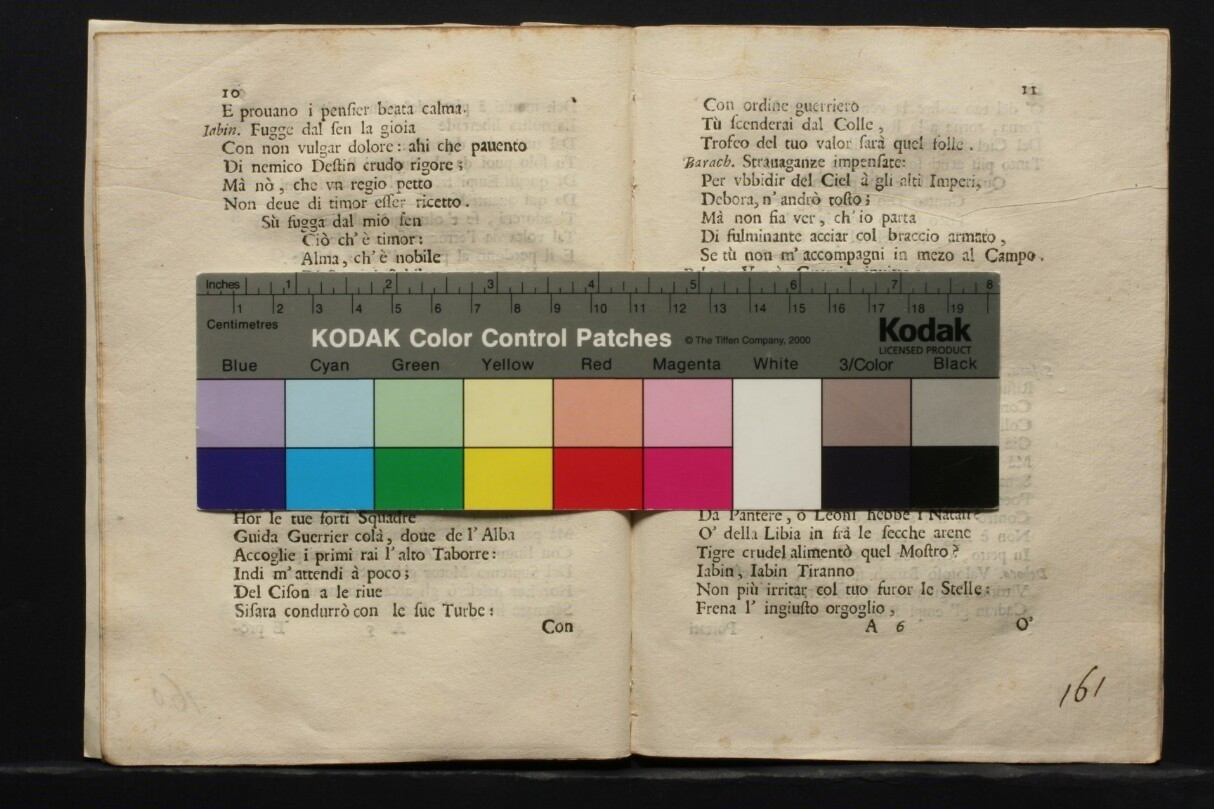 10
E prouano i pensier beata calma.
Iabin. Fugge dal sen la gioia
Con non vulgar dolore: ahi che pauento
Di nemico Destin crudo rigore;
Mà nò, che vn regio petto
Non deue di timor esser ricetto.
Sù fugga dal mio sen
Ciò ch'è timor:
Alma, ch'è nobile
Hor le tue forti Squadre
Guida Guerrier colà, doue de l'Alba
Accoglie i primi rai l'alto Taborre:
Indi m'attendi à poco;
Del Cison a le riue
Sisara condurrò con le sue Turbe:
Con
11
Con ordine guerriero
Tù scenderai dal Colle,
Trofeo del tuo valor sarà quel folle.
Barach. Strauaganze impensate:
Per vbbidir del Ciel à gli alti Imperi,
Debora, n'andrò tosto;
Mà non fia ver, ch'io parta
Di fulminante acciar col braccio armato,
Se tù non m'accompagni in mezo al Campo.
Da Pantere, ò Leoni hebbe i Natali?
O' della Libia in frà le secche arene
Tigre crudel alimentò quel Mostro?
Iabin, Iabin Tiranno
Non più irritar col tuo furor le Stelle:
Frena l' ingiusto orgoglio,
A 6
O'
161
Inches 1 2 3 4 5 6 7 8
1 2 3 4 5 6 7 8 9 10 11 12 13 14 15 16 17 18 19
Centimetres
KODAK Color Control Patches © The Tiffen Company, 2000
Kodak
LICENSED PRODUCT
Blue Cyan Green Yellow Red Magenta White 3/Color Black